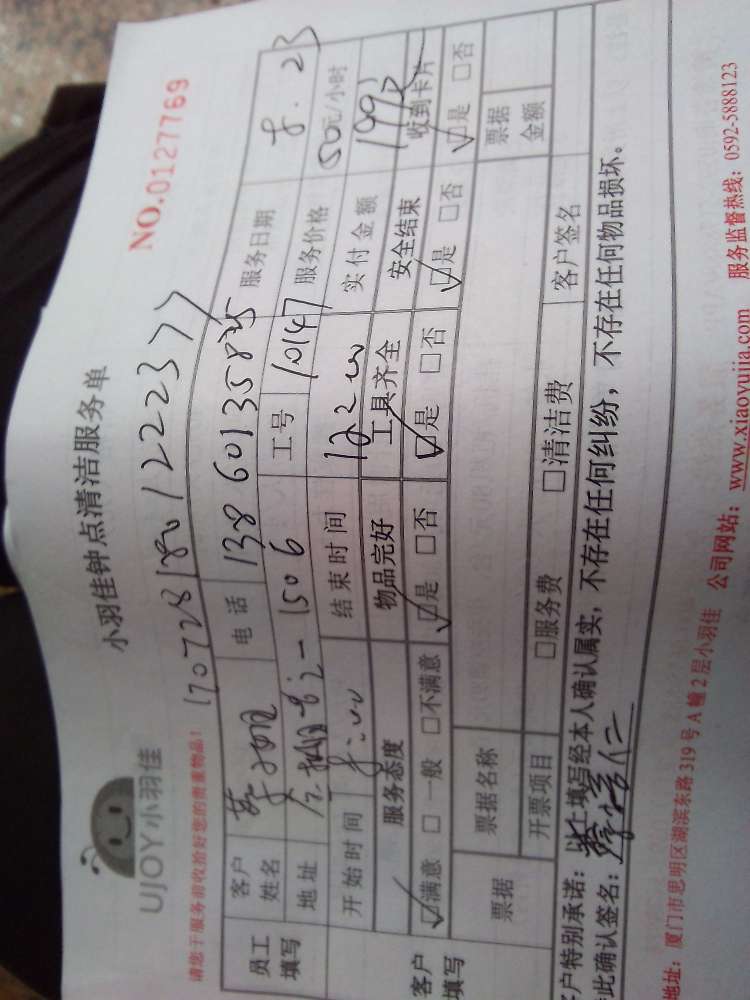 UJOY小羽佳
小羽佳钟点清洁服务单
NO.0127769
请您于服务前收拾好您的贵重物品!
1707281801222377
员工填写 客户姓名 电话 13860135875 服务日期 8.23
地址 1506 工号 10147 服务价格 50元/小时
开始时间 8:00 结束时间 12:00 实付金额 199
客户填写 服务态度 物品完好 工具齐全 安全结束 收到卡片
☑满意 □一般 □不满意 ☑是 □否 ☑是 □否 ☑是 □否 ☑是 □否
票据 票据名称 票据金额
开票项目 □服务费 □清洁费 客户签名
户特别承诺:以上填写经本人确认属实,不存在任何纠纷,不存在任何物品损坏。
此确认签名:
地址:厦门市思明区湖滨东路319号A幢2层小羽佳 公司网站:www.xiaoyujia.com 服务监督热线:0592-5888123